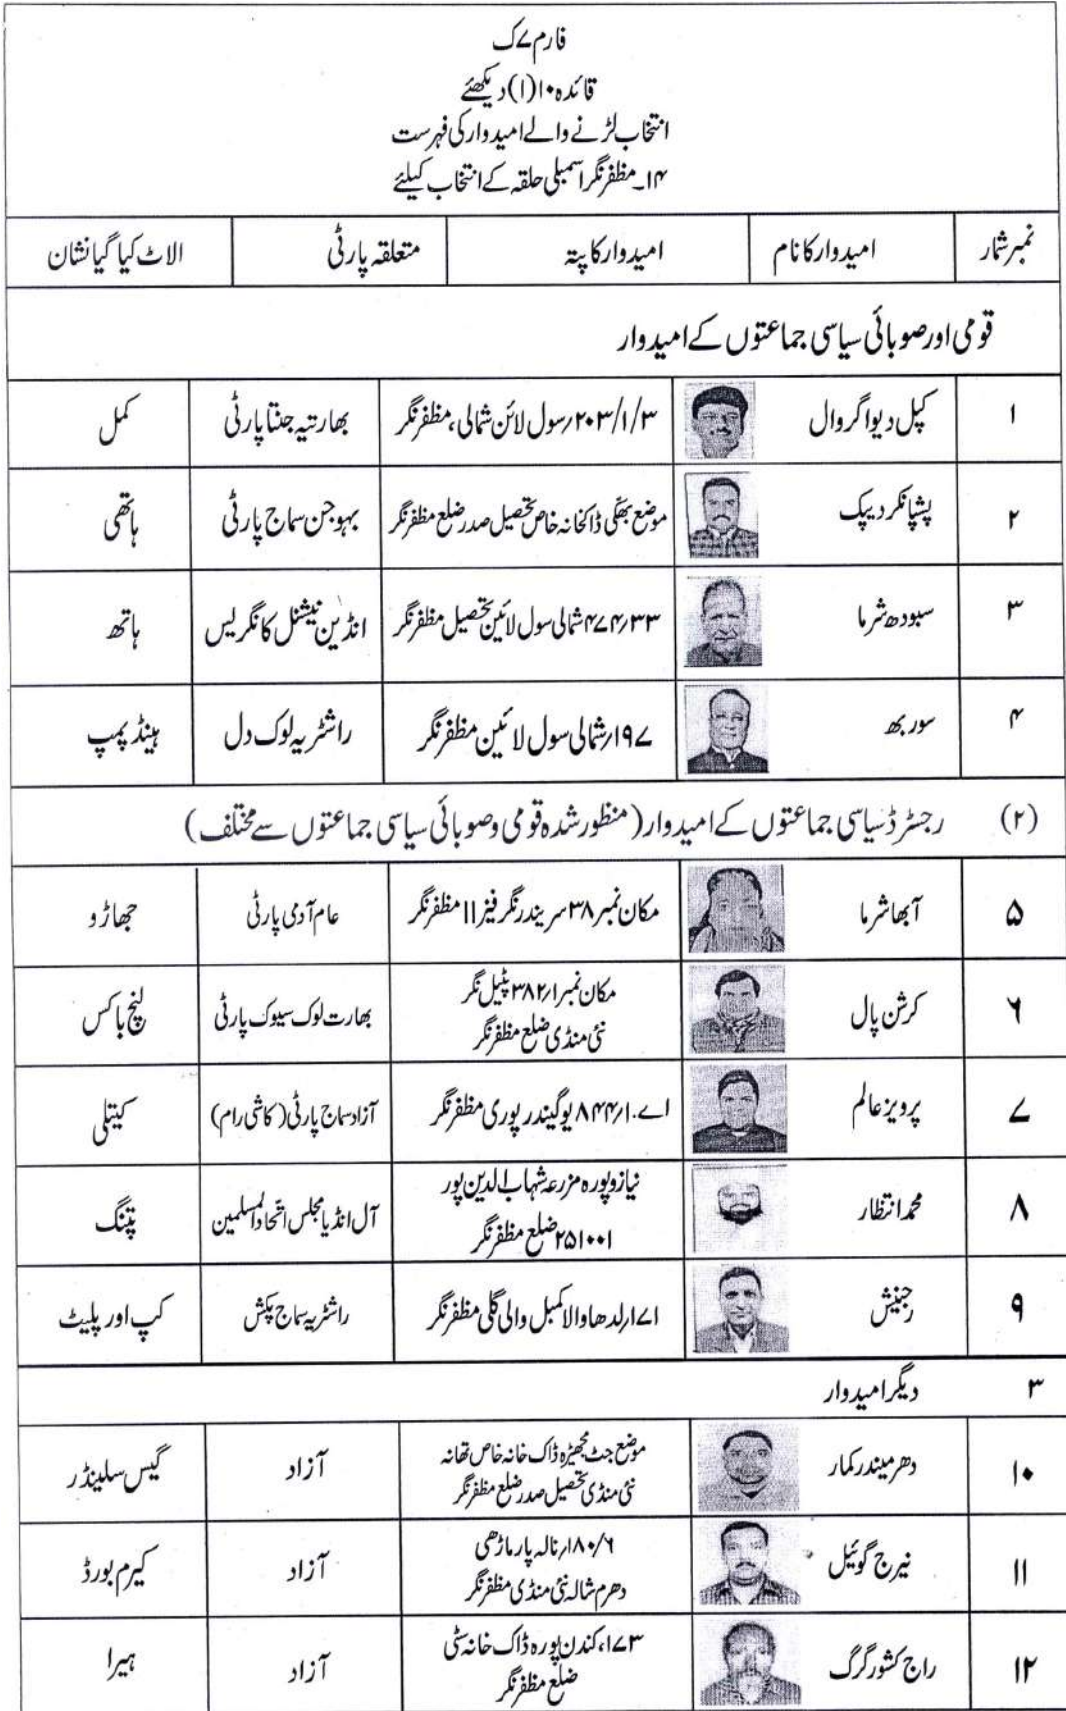 فارم ۷ک
قائدہ ۱۰(۱) دیکھئے
انتخاب لڑنے والے امیدوار کی فہرست
۱۴۔ مظفرنگر اسمبلی حلقہ کے انتخاب کیلئے
نمبر شمار امیدوار کا نام امیدوار کا پتہ متعلقہ پارٹی الاٹ کیا گیا نشان
قومی اور صوبائی سیاسی جماعتوں کے امیدوار
۱ کپل دیو اگروال ۲۰۳/۱/۳ رسول لائن شمالی، مظفرنگر بھارتیہ جنتا پارٹی کمل
۲ پشپانکر دیپک موضع بھکی ڈاکخانہ خاص تحصیل صدر ضلع مظفرنگر بہوجن سماج پارٹی ہاتھی
۳ سبودھ شرما ۴۷۴؍۳۳ شمالی سول لائین تحصیل مظفرنگر انڈین نیشنل کانگریس ہاتھ
۴ سوربھ ۱۹۷؍شمالی سول لائین مظفرنگر راشٹریہ لوک دل ہینڈ پمپ
(۲) رجسٹرڈ سیاسی جماعتوں کے امیدوار (منظور شدہ قومی وصوبائی سیاسی جماعتوں سے مختلف)
۵ آبھا شرما مکان نمبر ۳۸ سریندر نگر فیز ۱۱ مظفرنگر عام آدمی پارٹی جھاڑو
۶ کرشن پال مکان نمبر ۳۸۲؍۱ پٹیل نگر
نئی منڈی ضلع مظفرنگر بھارت لوک سیوک پارٹی لنچ باکس
۷ پرویز عالم اے۔۸۴۴؍۱۰ یوگیندر پوری مظفرنگر آزاد سماج پارٹی (کاشی رام) کیتلی
۸ محمد انتظار نیازوپورہ مزرعہ شہاب الدین پور
۲۵۱۰۰۱ ضلع مظفرنگر آل انڈیا مجلس اتحاد المسلمین پتنگ
۹ رجنیش ۱۷۱؍لدھاوالا کمبل والی گلی مظفرنگر راشٹریہ سماج پکش کپ اور پلیٹ
۳ دیگر امیدوار
۱۰ دھرمیندر کمار موضع جٹ مجھیڑہ ڈاک خانہ خاص تھانہ
نئی منڈی تحصیل صدر ضلع مظفرنگر آزاد گیس سلینڈر
۱۱ نیرج گوئیل ۱۸۰/۶؍نالہ پار ماڑھی
دھرم شالہ نئی منڈی مظفرنگر آزاد کیرم بورڈ
۱۲ راج کشور گرگ ۱۷۳، کندن پورہ ڈاک خانہ سٹی
ضلع مظفرنگر آزاد ہیرا